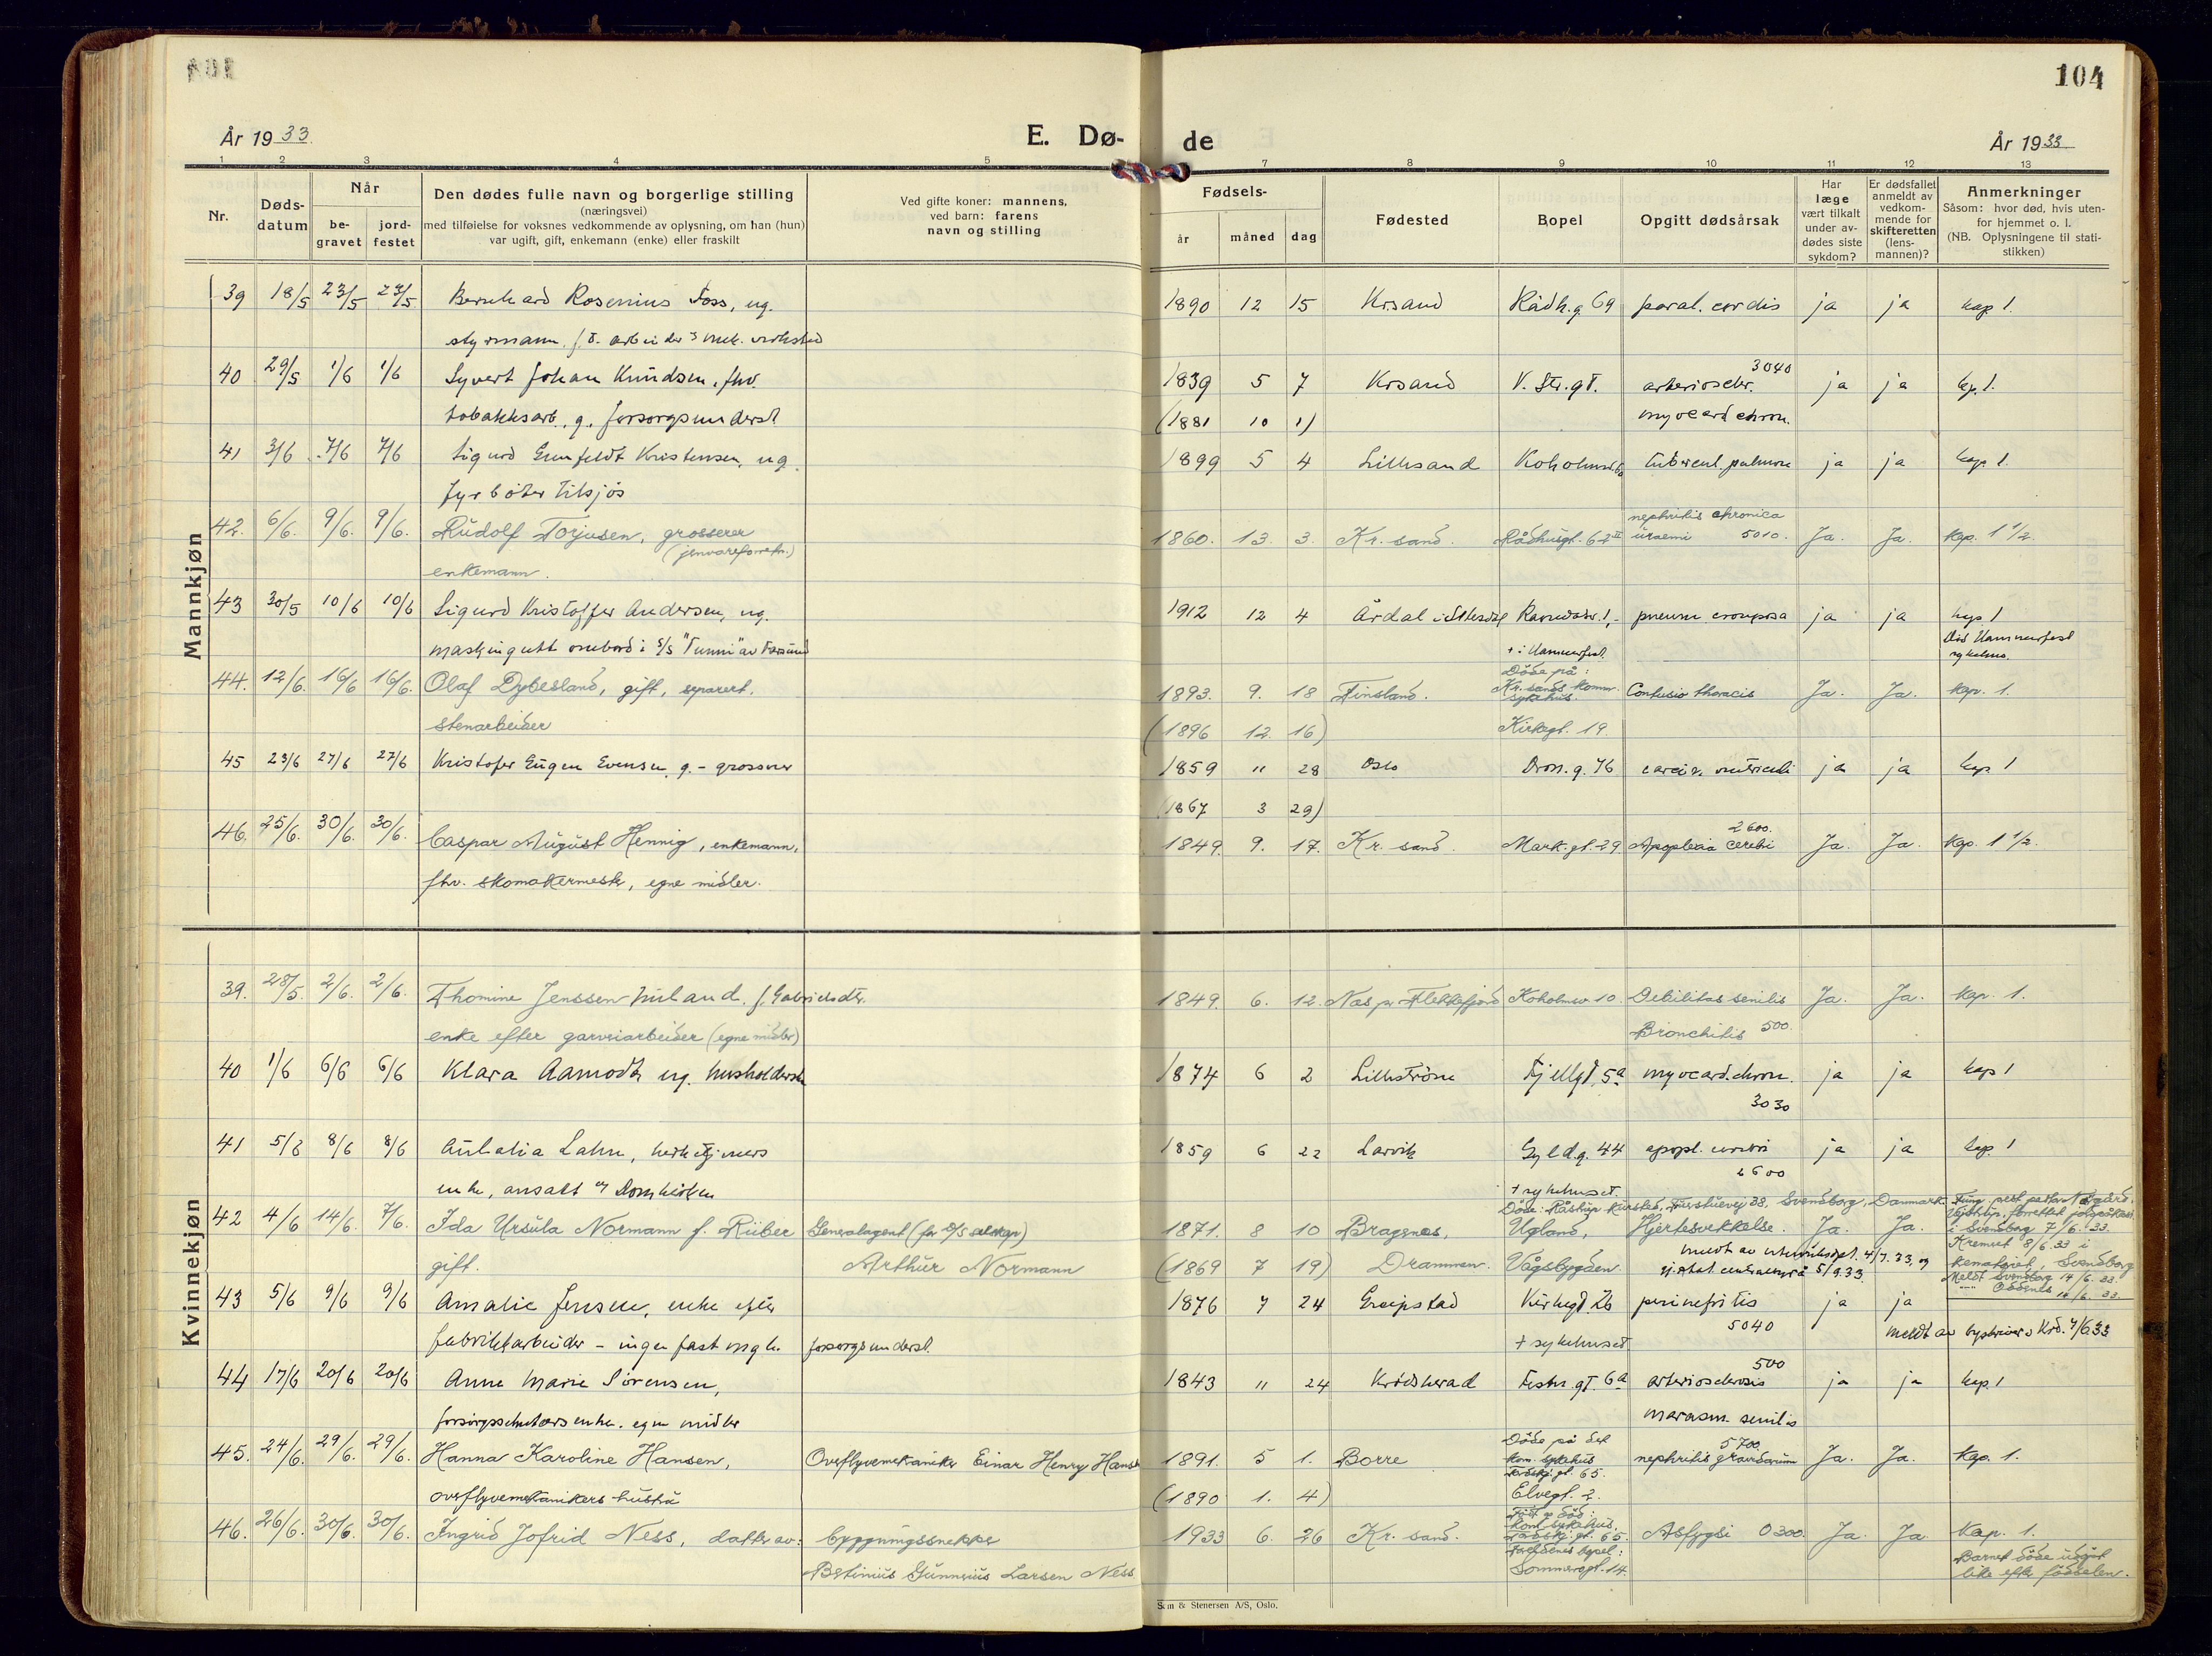 104
År 1933
E. Dø-
de
År 1933
1 2 3 4 5 7 8 9 10 11 12 13
Nr.
Døds-
datum
Når
be-
gravet
jord-
festet
Den dødes fulle navn og borgerlige stilling
(næringsvei)
med tilføielse for voksnes vedkommende av oplysning, om han (hun)
var ugift, gift, enkemann (enke) eller fraskilt
Ved gifte koner: mannens,
ved barn: farens
navn og stilling
Fødsels-
år måned dag
Fødested
Bopel
Opgitt dødsårsak
Har
læge
vært tilkalt
under av-
dødes siste
sykdom?
Er dødsfallet
anmeldt av
vedkom-
mende for
skifteretten
(lens-
mannen)?
Anmerkninger
Såsom: hvor død, hvis uten-
for hjemmet o. l.
(NB. Oplysningene til stati-
stikken)
Mannkjøn
39 18/5 23/5 23/5 Bernhard Rosenius Foss, ug. 1890 12 15 Krsand Rådh.g. 69 paral. cordis ja ja kap 1.
styrmann
40 29/5 1/6 1/6 Syvert Johan Knudsen, fhv. 1839 5 7 Krsand V. Str.gt. arterioscler. 3040 ja ja kp. 1.
tobakksarb., g. forsorgsunderst. (1881 10 1) myocard chron.
41 3/6 7/6 7/6 Sigurd Grunfeldt Kristensen, ug. 1899 5 4 Lillesand tubercul. pulmon ja ja kap. 1.
fyrbøter tilsjøs
42. 6/6. 9/6. 9/6. Rudolf Torjusen, grosserer 1860. 13. 3. Kr. sand. Rådhusgt. 62 II nephritis chronica uraemi 5010. Ja. Ja. Kap. 1 1/2.
(jernvareforretn.)
enkemann.
43 30/5 10/6 10/6 Sigurd Kristoffer Andersen, ug. 1912 12 4 Årdal i Setesdal pneum crouposa ja ja kap 1
maskingutt ombord i s/s "Tunni" av Farsund + i Hammerfest. Død Hammerfest
sykehus.
44. 12/6. 16/6 16/6. Olaf Dybesland, gift, separert. 1893. 9. 18 Finsland. Døde på: Kr.sands komm. sykehus. Contusio thoracis Ja. Ja. Kap. 1.
stenarbeider (1896 12. 16) Kirkegt. 19.
45 23/6 27/6 27/6 Kristofer Eugen Evensen, g. - grosserer 1859 11 28 Oslo Dron.g. 76 carcin. ventriculi ja ja kap. 1
(1867 3 29)
46. 25/6. 30/6. 30/6. Caspar August Hennig, enkemann, 1849. 9. 17. Kr. sand. Mark.gt. 29 Apoplexia cerebi 2600. Ja. Ja. Kap. 1 1/2.
fhv. skomakermester, egne midler.
Kvinnekjøn
39. 28/5. 2/6. 2/6. Thomine Jenssen Huland, f. Gabrielsdtr. 1849. 6. 12. Nes pr Flekkefjord Koholmsv. 10. Debilitas senilis Ja. Ja. Kap. 1.
enke efter garveriarbeider (egne midler) Bronchitis 500.
40 1/6 6/6 6/6 Klara Aamodt ug. husholderske 1874 6 2 Lillestrøm Fjellgt. 5a myocard. chron. ja ja kap 1
3030
41 8/6 8/6 Lahn, 1859 6 22 Larvik Gyld.g. 44 apopl. cerebri ja ja kap. 1
enke, ansatt v/ Domkirken 2600
+ sykehuset.
42 4/6 14/6. 7/6. Ida Ursula Normann f. Rüber Generalagent (for D/S selskap) 1871. 8 10 Bragernes, Ugland, Hjertesvekkelse. Ja. Ja.
Svendborg, Danmark
gift. Arthur Normann (1869 7 19) Drammen. Vågsbygden
i Svendborg 7/6.33.
Kremert 8/6.33 i
Svendborg
Meldt Svendborg 14/6.33.
43 5/6 9/6 9/6 Amalie Jensen, enke efter 1876 7 24 Greipstad Kirkegt. 26 perinefritis ja ja
fabrikkarbeider - ingen fast forsorgsunderst. + sykehuset 5040 meldt av byskriver i Krs. 7/6 33
44 17/6 20/6 20/6 Anne Marie Sørensen, 1843 11 24 Krødsherad Festn.gt. 6a arteriosclerosis 500 ja ja kap. 1
enke. egne midler marasm. senilis
45. 24/6. 29/6. 29/6. Hanna Karoline Hansen, Overflyvemekaniker Einar Henry Hansen 1891. 5 1. Borre Døde på det kom. sykehus nephritis gravidarum 5700. Ja. Ja. Kap. 1.
overflyvemekanikers hustru (1890 1. 4) Elvegt. 2.
46. 26/6. 30/6. 30/6. Ingrid Jofrid Ness, datter av: bygningssnekker 1933 6. 26 Kr. sand. Født og død: Kom. sykehus, Asfyksi 0300. Ja. Ja Kap. 1.
Betinius Gunnerius Larsen Ness Sommergt. 14. Barnet døde
like efter fødselen.
& Stenersen A/S, Oslo.